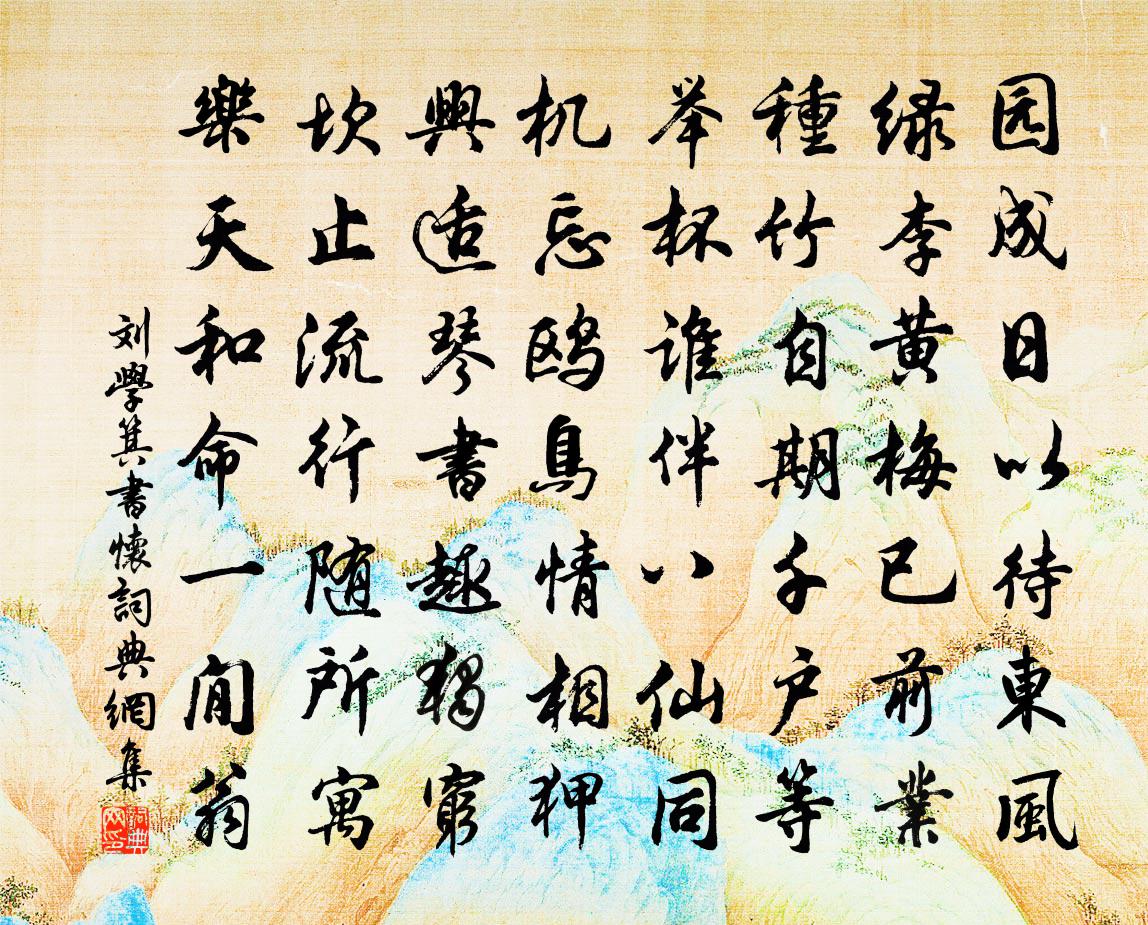 园成日以待東風
绿李黄梅已前業
種竹自期千户等
举杯谁伴八仙同
机忘鸥鳥情相狎
興适琴書趣独窮
坎止流行随所寓
樂天和命一闲翁
刘學箕書懷詞典網集
詞典網印